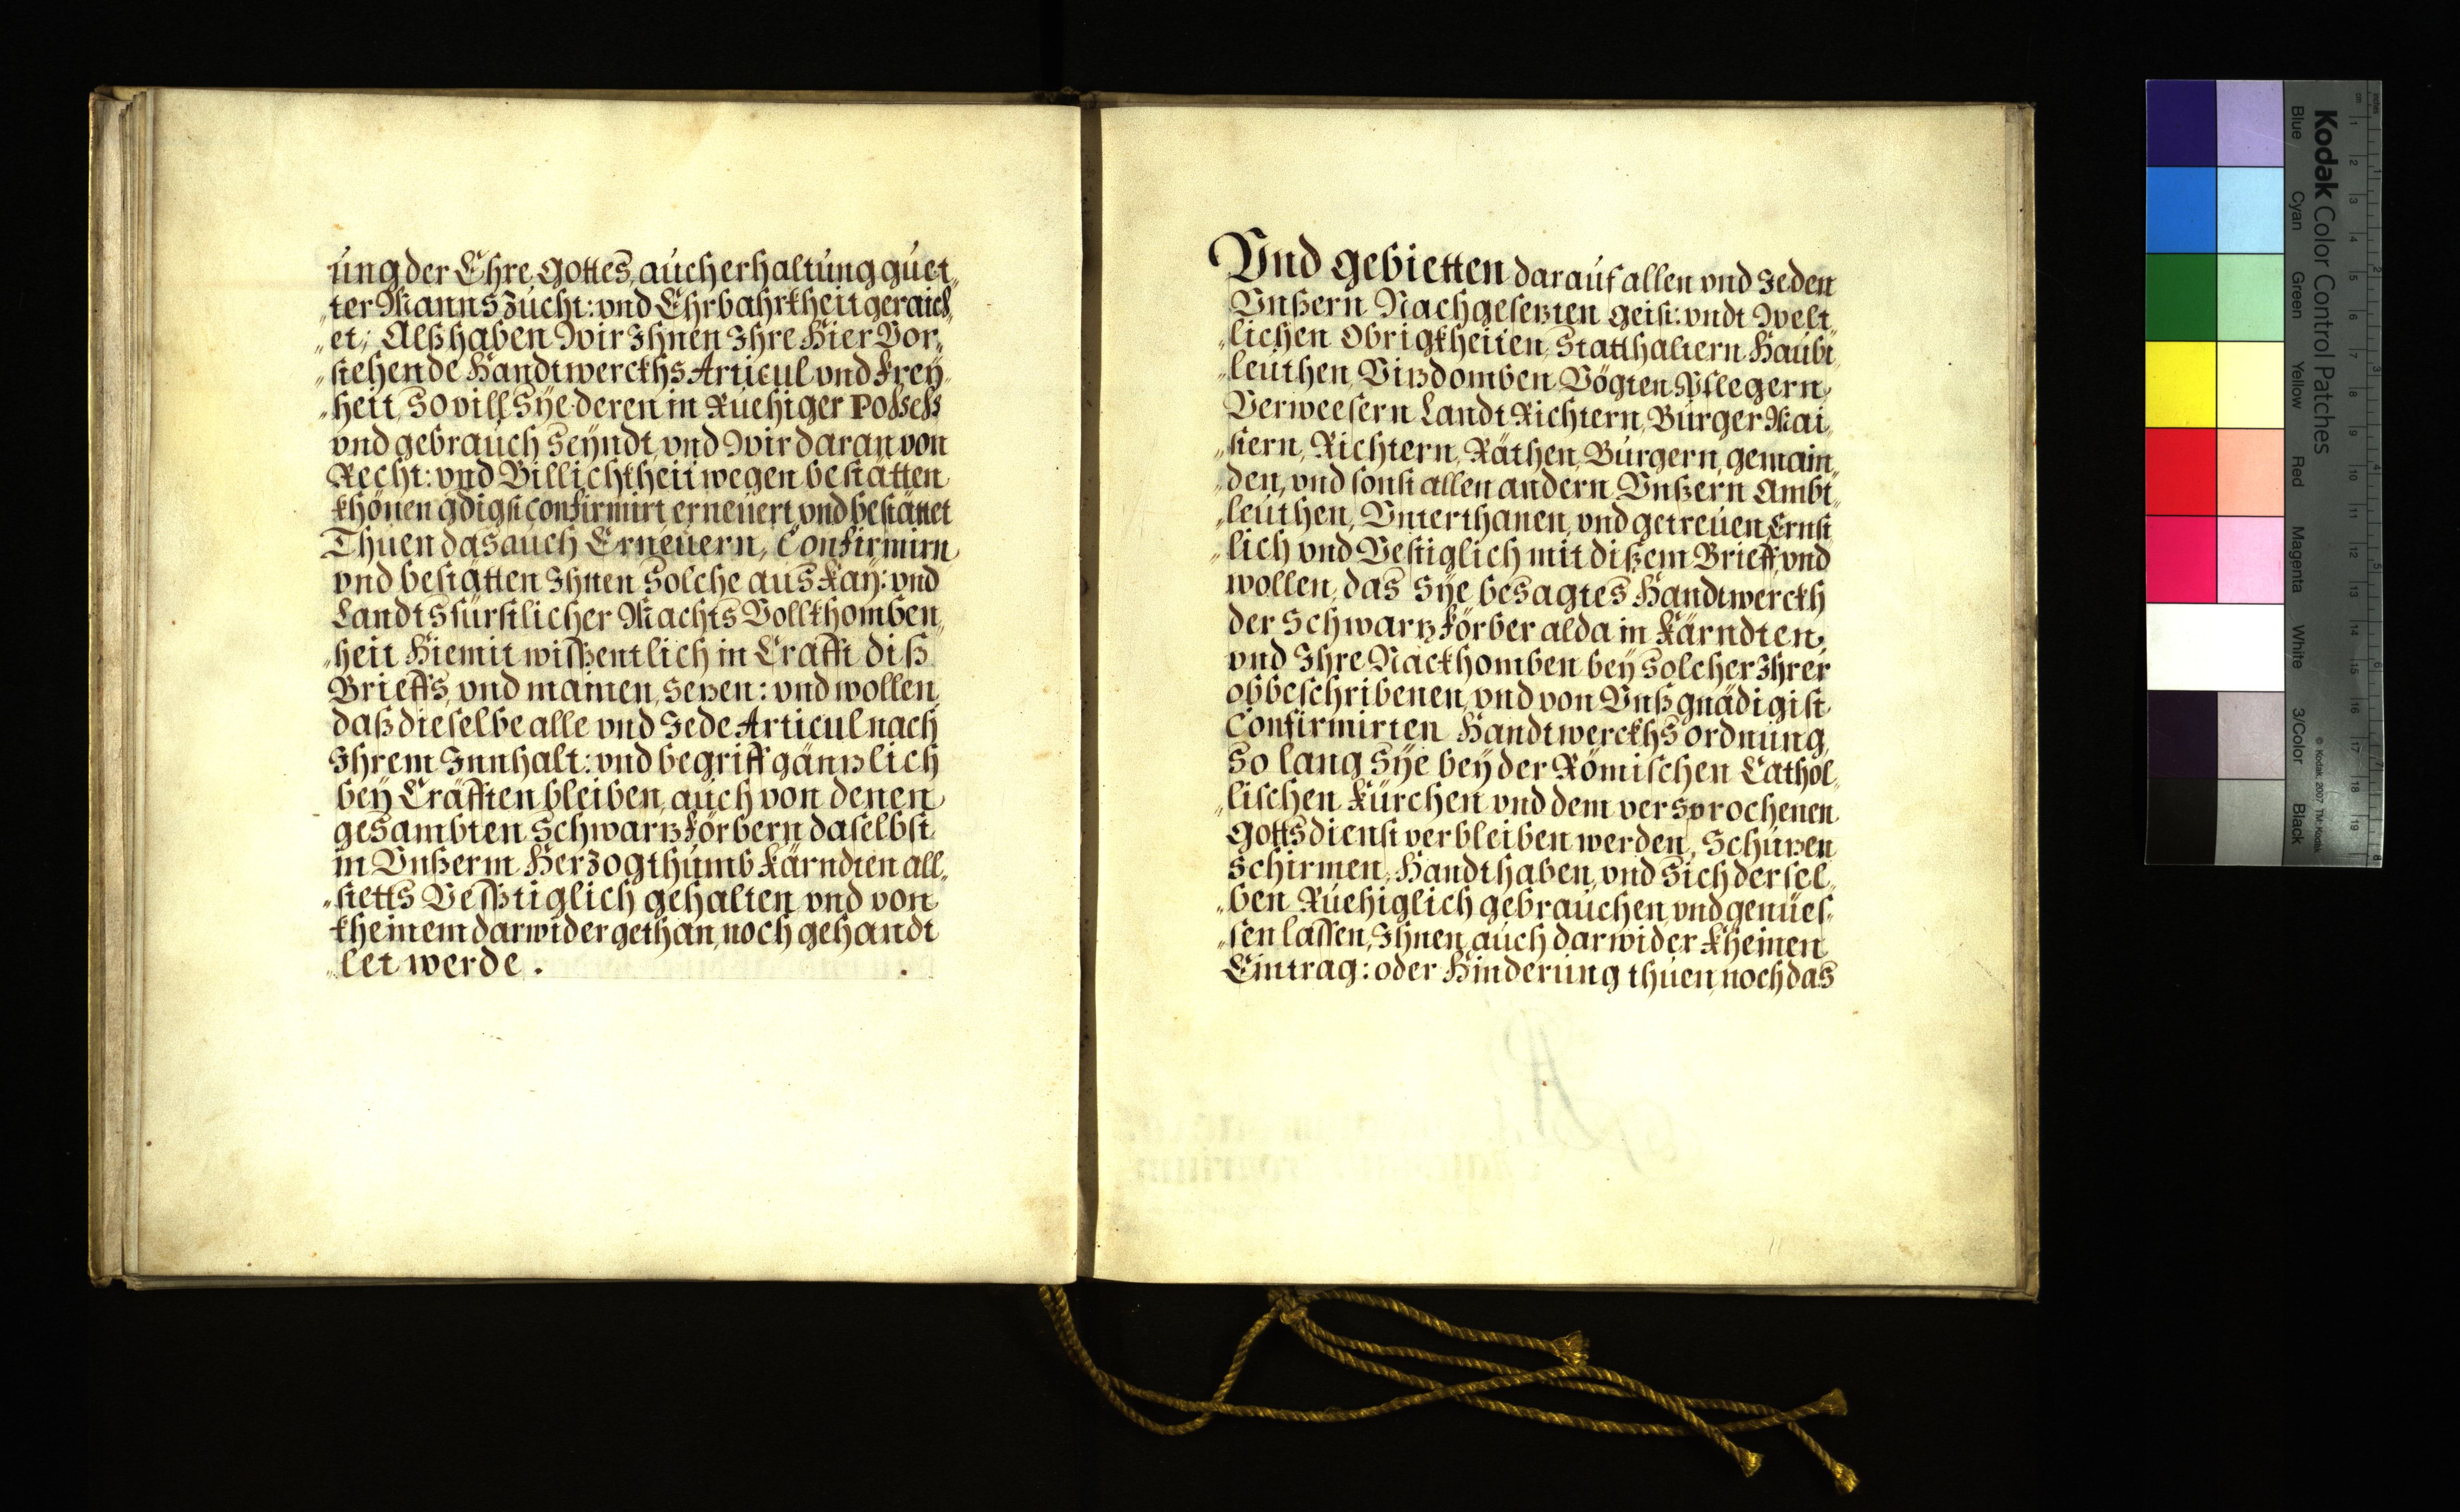 ung der Ehre Gottes, auch erhaltung guet„
„ter Manns Zucht: vnd Ehrbahrkheit geraich„
„et; Alß haben Wir Ihnen Ihre Hier Vor„
„stehende Handtwerckhs Articul vnd Frey„
„heit, So vill Sÿe deren in Ruehiger Possess
vnd gebrauch Seÿndt, vnd Wir daran von
Recht: vnd Billichkheit wegen bestätten
khönen gdigst confirmirt erneuert vnd bestättet
Thuen das auch Erneuern, Confirmirn
vnd bestätten Ihnen Solche aus Kaÿ: vnd
Landtsfürstlicher Machts Vollkhomben„
„heit Hiemit wissentlich in Crafft diß
Brieffs, vnd mainen, Sezen: vnd wollen,
daß dieselbe alle vnd Jede Articul nach
Ihrem Innhalt: vnd begriff gännzlich
beÿ Cräfften bleiben, auch von denen
gesambten Schwarzförbern daselbst
in Vnßerm Herzogthumb Kärndten all„
„stetts Vesstiglich gehalten, vnd von
kheinem darwider gethan, noch gehandt
„let werde.
Vnd gebietten darauf allen vnd Jeden
Vnßern Nachgesezten geist: vndt Welt„
„lichen Obrigkheiten, Statthaltern Haubt„
„leuthen, Vizdomben Vögten, Pflegern,
Verweesern Landt Richtern, Burger Mai„
„stern, Richtern, Räthen, Burgern, gemain„
„den, vnd sonst allen andern Vnßern Ambt„
„leuthen, Vnterthanen, vnd getreuen, Ernst„
„lich vnd Vestiglich mit dißem Brieff, vnd
wollen, das Sÿe besagtes Handtwerckh
der Schwarzförber alda in Kärndten,
vnd Ihre Nackhomben beÿ Solcher Ihrer
obbeschribenen, vnd von Vnß gnädigist
Confirmirten Handtwerckhs Ordnung,
So lang Sÿe beÿ der Römischen Cathol„
„lischen Kürchen vnd dem versprochenen
Gottsdienst verbleiben werden, Schüzen
Schirmen, Handthaben, vnd Sich dersel„
„ben Ruehiglich gebrauchen, vnd genües„
„sen lassen, Ihnen auch darwider kheinen
Eintrag: oder Hinderung thuen, noch das
Kodak Color Control Patches
Blue Cyan Green Yellow Red Magenta White 3/Color Black